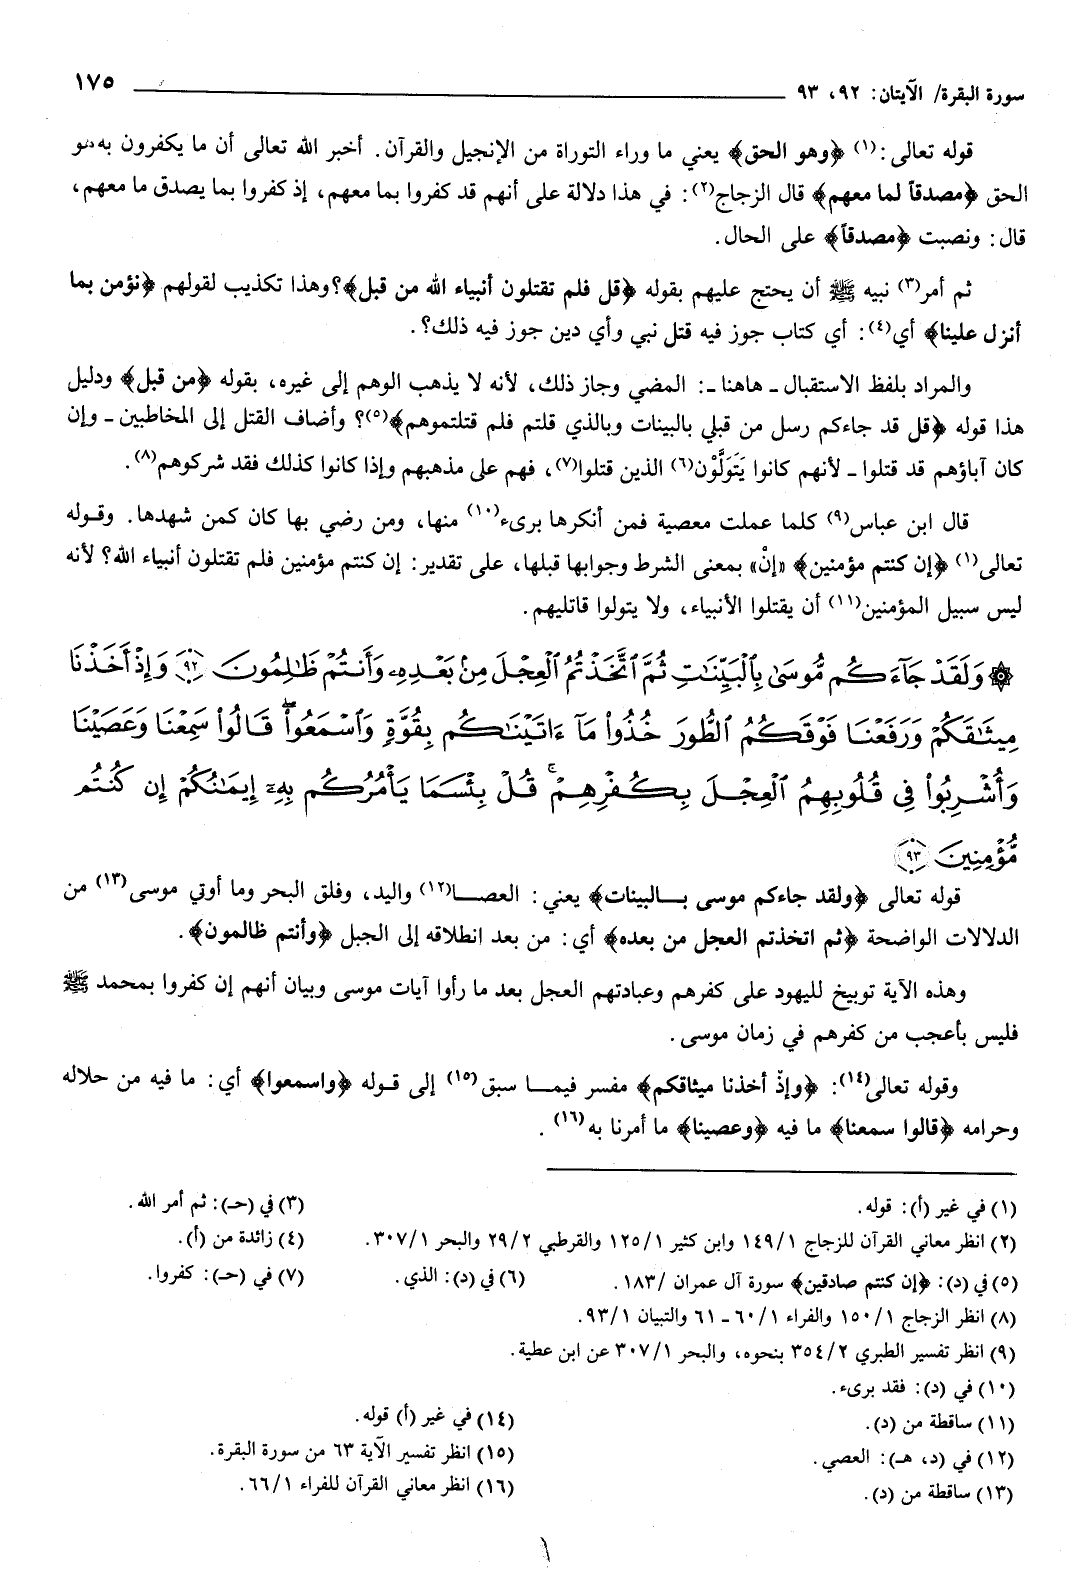 سورة البقرة/ الآيتان: ٩٢، ٩٣ ١٧٥
قوله تعالى:(١) ﴿وهو الحق﴾ يعني ما وراء التوراة من الإنجيل والقرآن. أخبر الله تعالى أن ما يكفرون به هو
الحق ﴿مصدقاً لما معهم﴾ قال الزجاج(٢): في هذا دلالة على أنهم قد كفروا بما معهم، إذ كفروا بما يصدق ما معهم،
قال: ونصبت ﴿مصدقاً﴾ على الحال.
ثم أمر(٣) نبيه ﷺ أن يحتج عليهم بقوله ﴿قل فلم تقتلون أنبياء الله من قبل﴾؟وهذا تكذيب لقولهم ﴿نؤمن بما
أنزل علينا﴾ أي(٤): أي كتاب جوز فيه قتل نبي وأي دين جوز فيه ذلك؟.
والمراد بلفظ الاستقبال ـ هاهنا ـ: المضي وجاز ذلك، لأنه لا يذهب الوهم إلى غيره، بقوله ﴿من قبل﴾ ودليل
هذا قوله ﴿قل قد جاءكم رسل من قبلي بالبينات وبالذي قلتم فلم قتلتموهم﴾(٥)؟ وأضاف القتل إلى المخاطبين ـ وإن
كان آباؤهم قد قتلوا ـ لأنهم كانوا يَتَوَلَّوْن(٦) الذين قتلوا(٧)، فهم على مذهبهم وإذا كانوا كذلك فقد شركوهم(٨).
قال ابن عباس(٩) كلما عملت معصية فمن أنكرها برىء(١٠) منها، ومن رضي بها كان كمن شهدها. وقوله
تعالى(١) ﴿إن كنتم مؤمنين﴾ «إنْ» بمعنى الشرط وجوابها قبلها، على تقدير: إن كنتم مؤمنين فلم تقتلون أنبياء الله؟ لأنه
ليس سبيل المؤمنين(١١) أن يقتلوا الأنبياء، ولا يتولوا قاتليهم.
۞ وَلَقَدْ جَآءَكُم مُّوسَىٰ بِالْبَيِّنَـٰتِ ثُمَّ اتَّخَذْتُمُ الْعِجْلَ مِنۢ بَعْدِهِۦ وَأَنتُمْ ظَـٰلِمُونَ ٩٢ وَإِذْ أَخَذْنَا
مِيثَـٰقَكُمْ وَرَفَعْنَا فَوْقَكُمُ الطُّورَ خُذُوا۟ مَآ ءَاتَيْنَـٰكُم بِقُوَّةٍ وَاسْمَعُوا۟ ۖ قَالُوا۟ سَمِعْنَا وَعَصَيْنَا
وَأُشْرِبُوا۟ فِى قُلُوبِهِمُ الْعِجْلَ بِكُفْرِهِمْ ۚ قُلْ بِئْسَمَا يَأْمُرُكُم بِهِۦٓ إِيمَـٰنُكُمْ إِن كُنتُم
مُّؤْمِنِينَ ٩٣
قوله تعالى ﴿ولقد جاءكم موسى بـالبينات﴾ يعني: العصـا(١٢) واليد، وفلق البحر وما أوتي موسى(١٣) من
الدلالات الواضحة ﴿ثم اتخذتم العجل من بعده﴾ أي: من بعد انطلاقه إلى الجبل ﴿وأنتم ظالمون﴾.
وهذه الآية توبيخ لليهود على كفرهم وعبادتهم العجل بعد ما رأوا آيات موسى وبيان أنهم إن كفروا بمحمد ﷺ
فليس بأعجب من كفرهم في زمان موسى.
وقوله تعالى(١٤): ﴿وإذْ أخذنا ميثاقكم﴾ مفسر فيمـا سبق(١٥) إلى قـوله ﴿واسمعوا﴾ أي: ما فيه من حلاله
وحرامه ﴿قالوا سمعنا﴾ ما فيه ﴿وعصينا﴾ ما أمرنا به(١٦).
(١) في غير (أ): قوله. (٣) في (حـ): ثم أمر الله.
(٢) انظر معاني القرآن للزجاج ١/١٤٩ وابن كثير ١/١٢٥ والقرطبي ٢/٢٩ والبحر ١/٣٠٧. (٤) زائدة من (أ).
(٥) في (د): ﴿إن كنتم صادقين﴾ سورة آل عمران /١٨٣. (٦) في (د): الذي. (٧) في (حـ): كفروا.
(٨) انظر الزجاج ١/١٥٠ والفراء ١/٦٠ ـ ٦١ والتبيان ١/٩٣.
(٩) انظر تفسير الطبري ٢/٣٥٤ بنحوه، والبحر ١/٣٠٧ عن ابن عطية.
(١٠) في (د): فقد برىء.
(١١) ساقطة من (د). (١٤) في غير (أ) قوله.
(١٢) في (د، هـ): العصي. (١٥) انظر تفسير الآية ٦٣ من سورة البقرة.
(١٣) ساقطة من (د). (١٦) انظر معاني القرآن للفراء ١/٦٦.